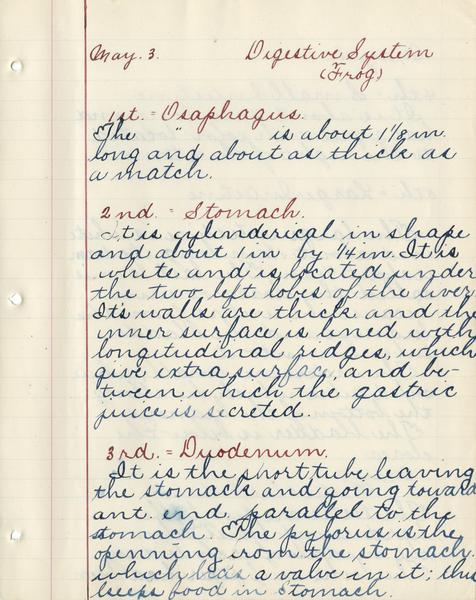 May. 3. Digestive System
(Frog)
1st. = Osaphagus.
The " is about 1 1/8 in.
long and about as thick as
a match.
2nd. = Stomach.
It is cylinderical in shape
and about 1 in by 1/4 in. It is
white and is located under
the two left lobes of the liver
It's walls are thick and the
inner surface is lined with
longitudinal ridges, which
give extra surface, and be-
tween which the gastric
juice is secreted.
3rd. = Duodenum.
It is the short tube leaving
the stomack and going toward
ant. end. parallel to the
stomach. The pylorus is the
openning from the stomach
which has a valve in it; thus
keeps food in stomach.